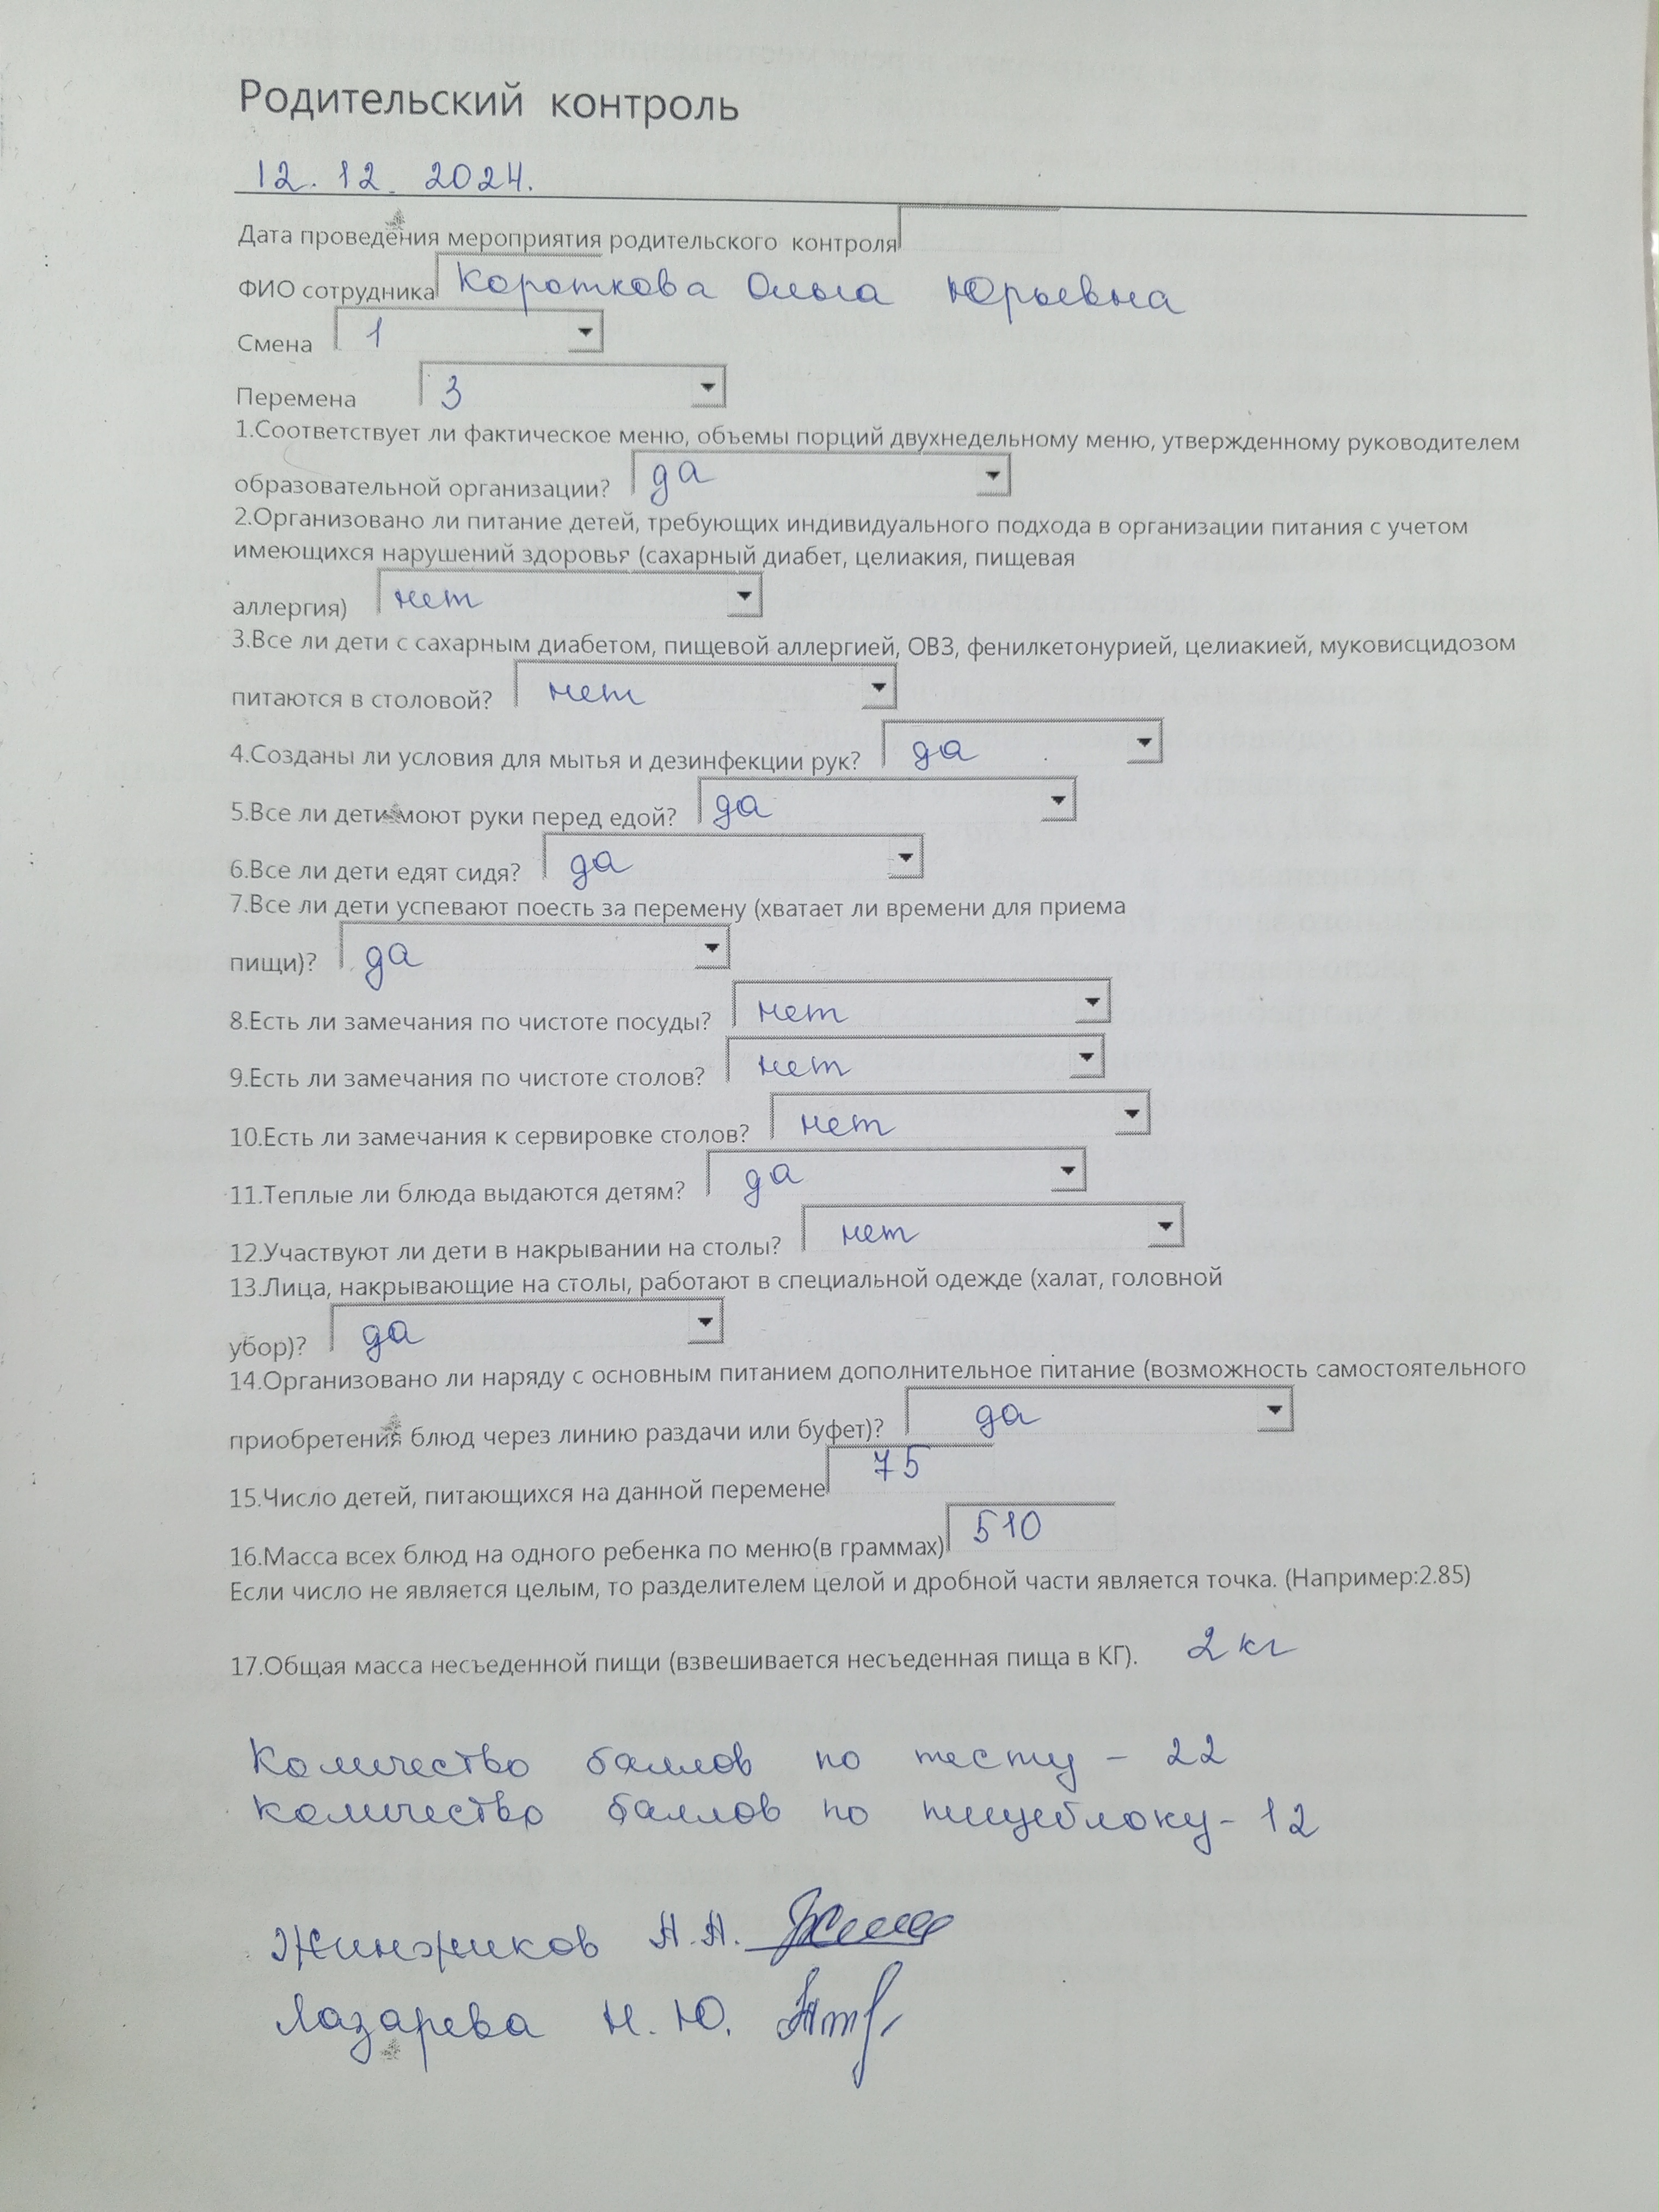 Родительский контроль
12.12.2024.
Дата проведения мероприятия родительского контроля
ФИО сотрудника Короткова Ольга Юрьевна
Смена 1
Перемена 3
1.Соответствует ли фактическое меню, объемы порций двухнедельному меню, утвержденному руководителем
образовательной организации? да
2.Организовано ли питание детей, требующих индивидуального подхода в организации питания с учетом
имеющихся нарушений здоровья (сахарный диабет, целиакия, пищевая
аллергия) нет
3.Все ли дети с сахарным диабетом, пищевой аллергией, ОВЗ, фенилкетонурией, целиакией, муковисцидозом
питаются в столовой? нет
4.Созданы ли условия для мытья и дезинфекции рук? да
5.Все ли дети моют руки перед едой? да
6.Все ли дети едят сидя? да
7.Все ли дети успевают поесть за перемену (хватает ли времени для приема
пищи)? да
8.Есть ли замечания по чистоте посуды? нет
9.Есть ли замечания по чистоте столов? нет
10.Есть ли замечания к сервировке столов? нет
11.Теплые ли блюда выдаются детям? да
12.Участвуют ли дети в накрывании на столы? нет
13.Лица, накрывающие на столы, работают в специальной одежде (халат, головной
убор)? да
14.Организовано ли наряду с основным питанием дополнительное питание (возможность самостоятельного
приобретения блюд через линию раздачи или буфет)? да
15.Число детей, питающихся на данной перемене 75
16.Масса всех блюд на одного ребенка по меню(в граммах) 510
Если число не является целым, то разделителем целой и дробной части является точка. (Например:2.85)
17.Общая масса несъеденной пищи (взвешивается несъеденная пища в КГ). 2 кг
Количество баллов по тесту - 22
Количество баллов по пищеблоку - 12
Жинжиков А.А.
Лазарева Н.Ю.